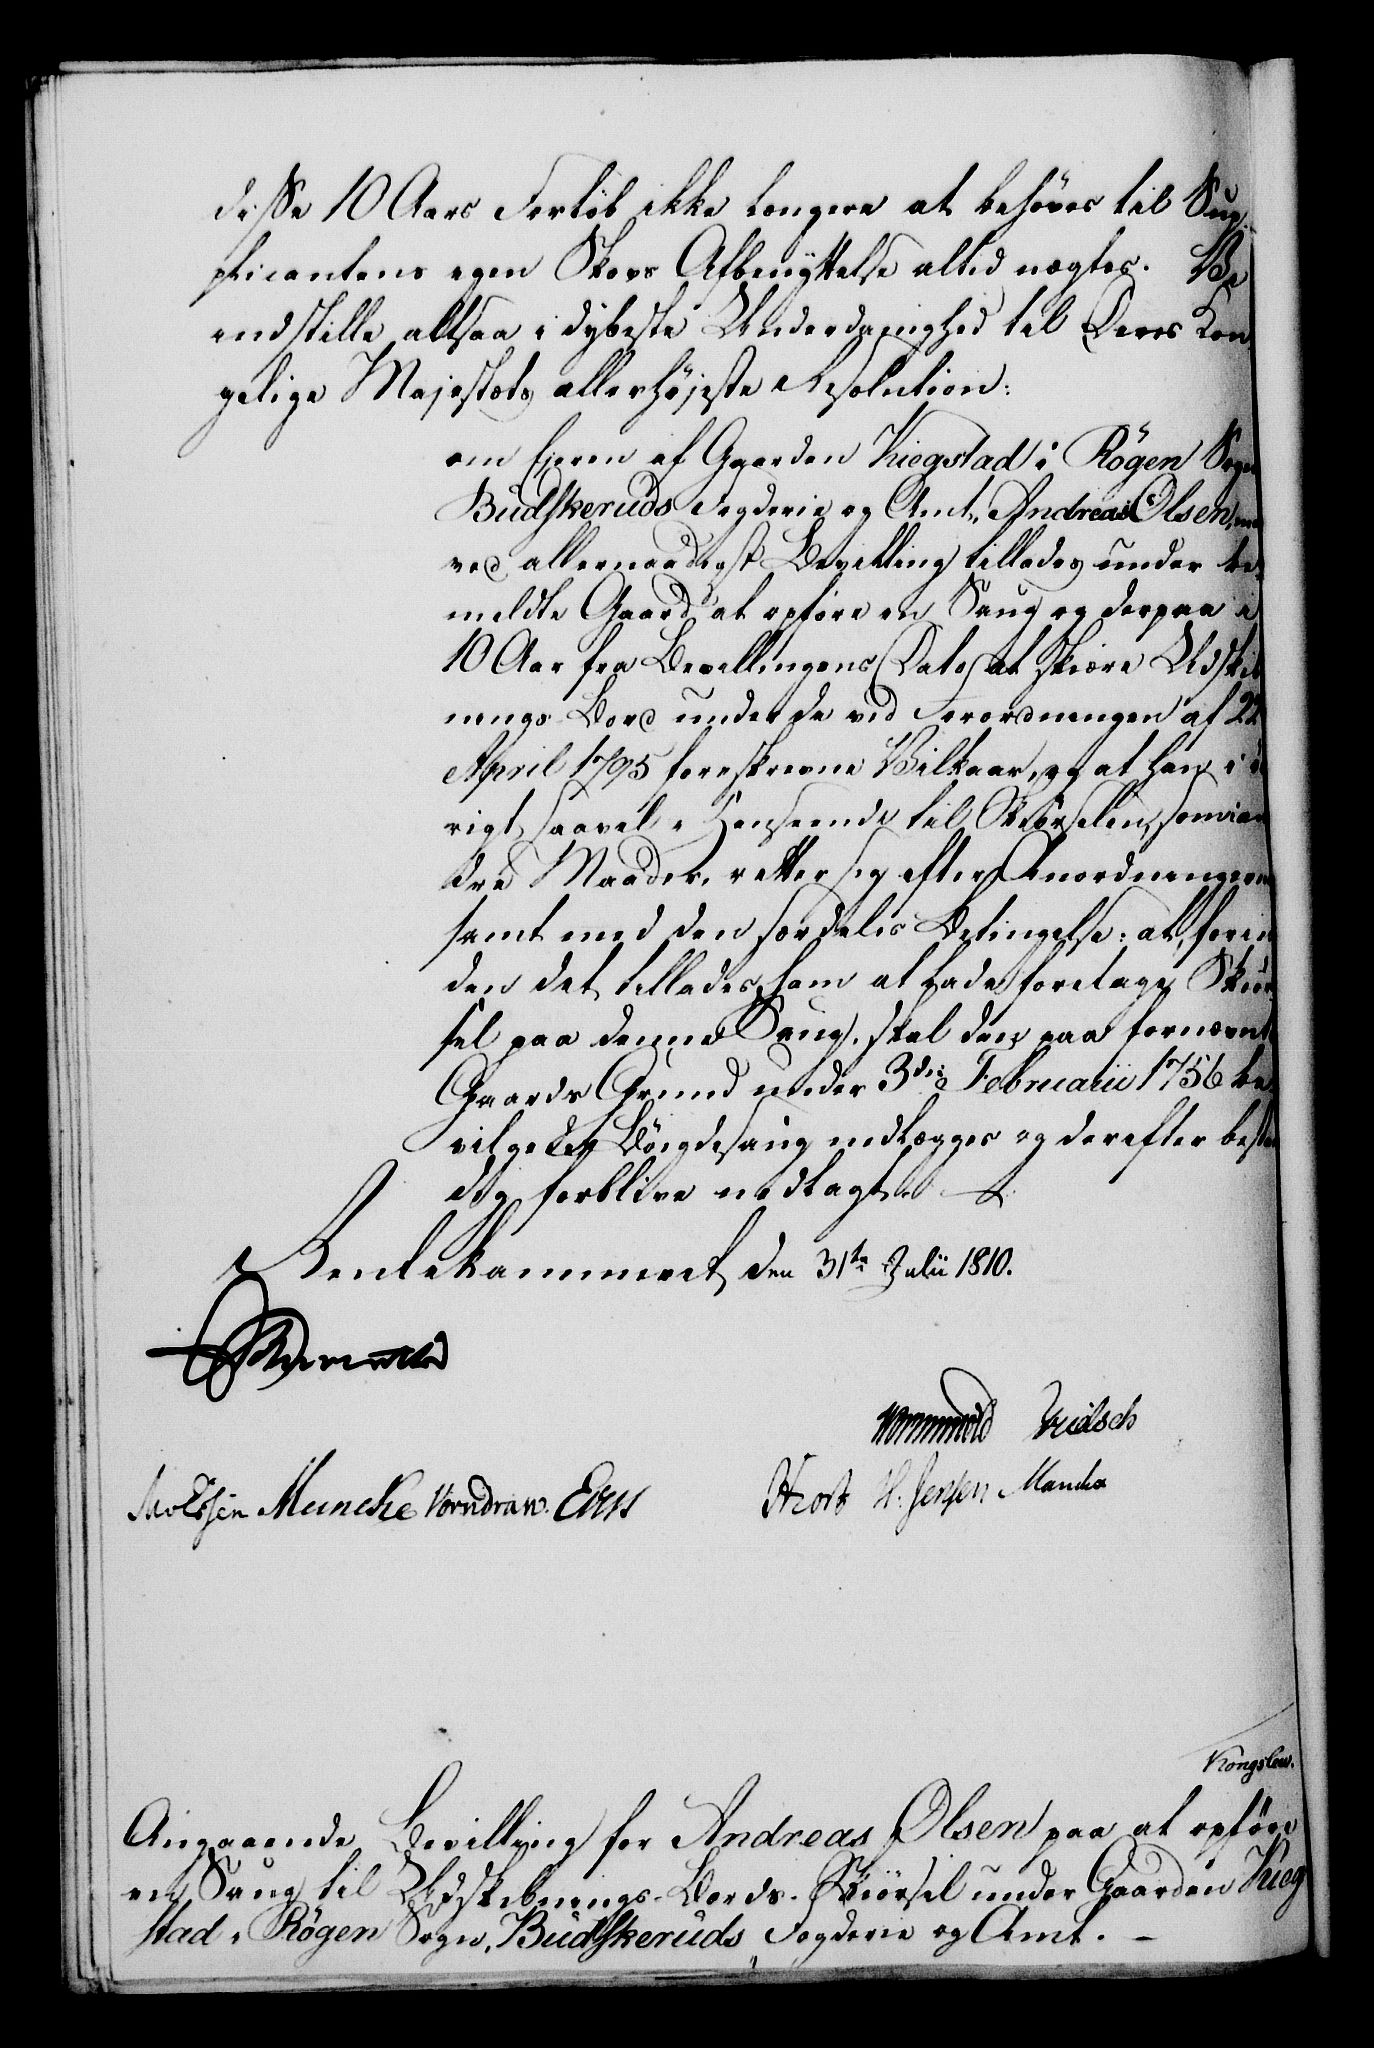 disse 10 Aars Forløb ikke længere at behøves til Sup-
plicantens egen Skovs Afbenyttelse altid nægtes. Vi
indstille altsaa i dybeste Underdanighed til Deres Kon-
gelige Majestæts allerhøjeste Resolution:
om Ejeren af Gaarden Kiegstad i Røgen Sogn
Budskeruds Fogderie og Amt, Andreas Olsen, maa
ved allernaadigst Bevilling tillades under be-
meldte Gaard at opføre en Saug og derpaa i
10 Aar fra Bevillingens Dato at skiære Udskib-
nings-Bord under de ved Forordningen af 22
April 1795 foreskrevne Vilkaar, og at han i øv-
rigt, saavel i Henseende til Skiørselen, som i an-
dre Maader, retter sig efter Anordningerne
samt med den særdeles Betingelse: at, forin-
den det tillades ham at lade foretage Skiør-
sel paa denne Saug, skal den paa fornævnte
Gaards Grund under 3die Februarii 1756 be-
vilgede Bøigdesaug nedlægges og derefter bestan-
dig forblive nedlagt.
Rentekammeret, den 31te Julii 1810.
Wormskiold Fridsch
Muncke Vorndran.
Hiort H. Jensen Manthe
Kongslew.
Angaaende Bevilling for Andreas Olsen paa at opføre
en Saug til Udskibnings-Bords-Skiørsel under Gaarden Kieg
stad i Røgen Sogn, Budskeruds Fogderie og Amt. –